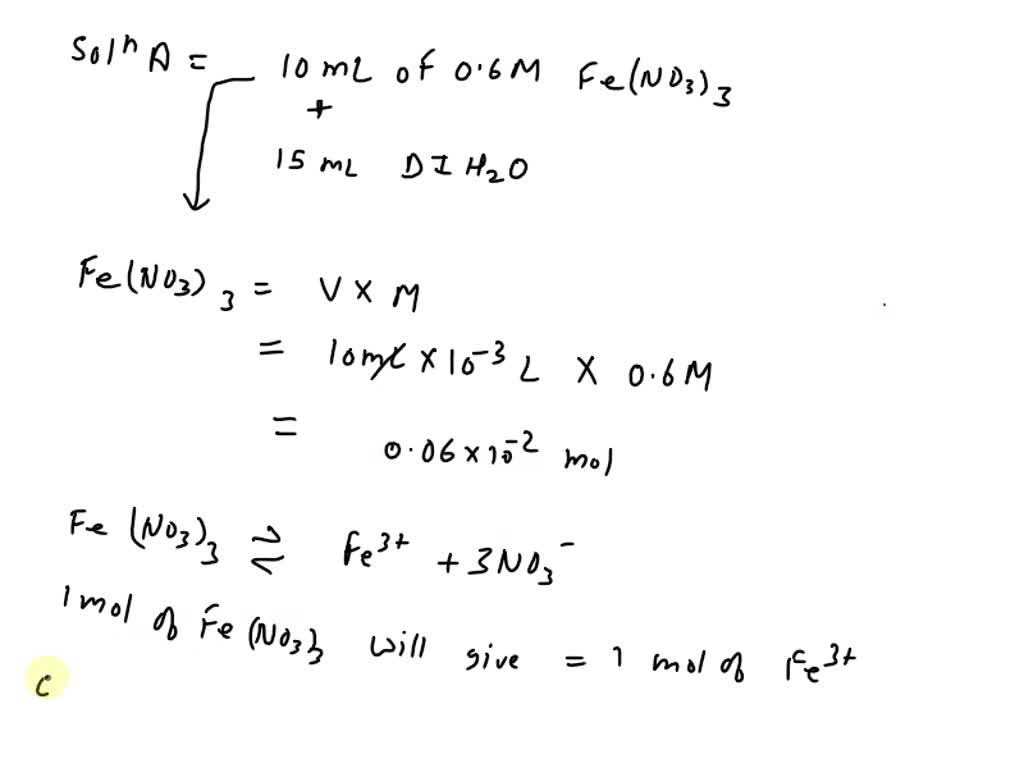 Solⁿ A = 10 mL of 0.6M Fe(NO₃)₃
+
15 mL DI H₂O
Fe(NO₃)₃ = V × M
= 10mL × 10⁻³ L × 0.6M
= 0.06 × 10⁻² mol
Fe(NO₃)₃ ⇌ Fe³⁺ + 3NO₃⁻
1 mol of Fe(NO₃)₃ will give = 1 mol of Fe³⁺
C